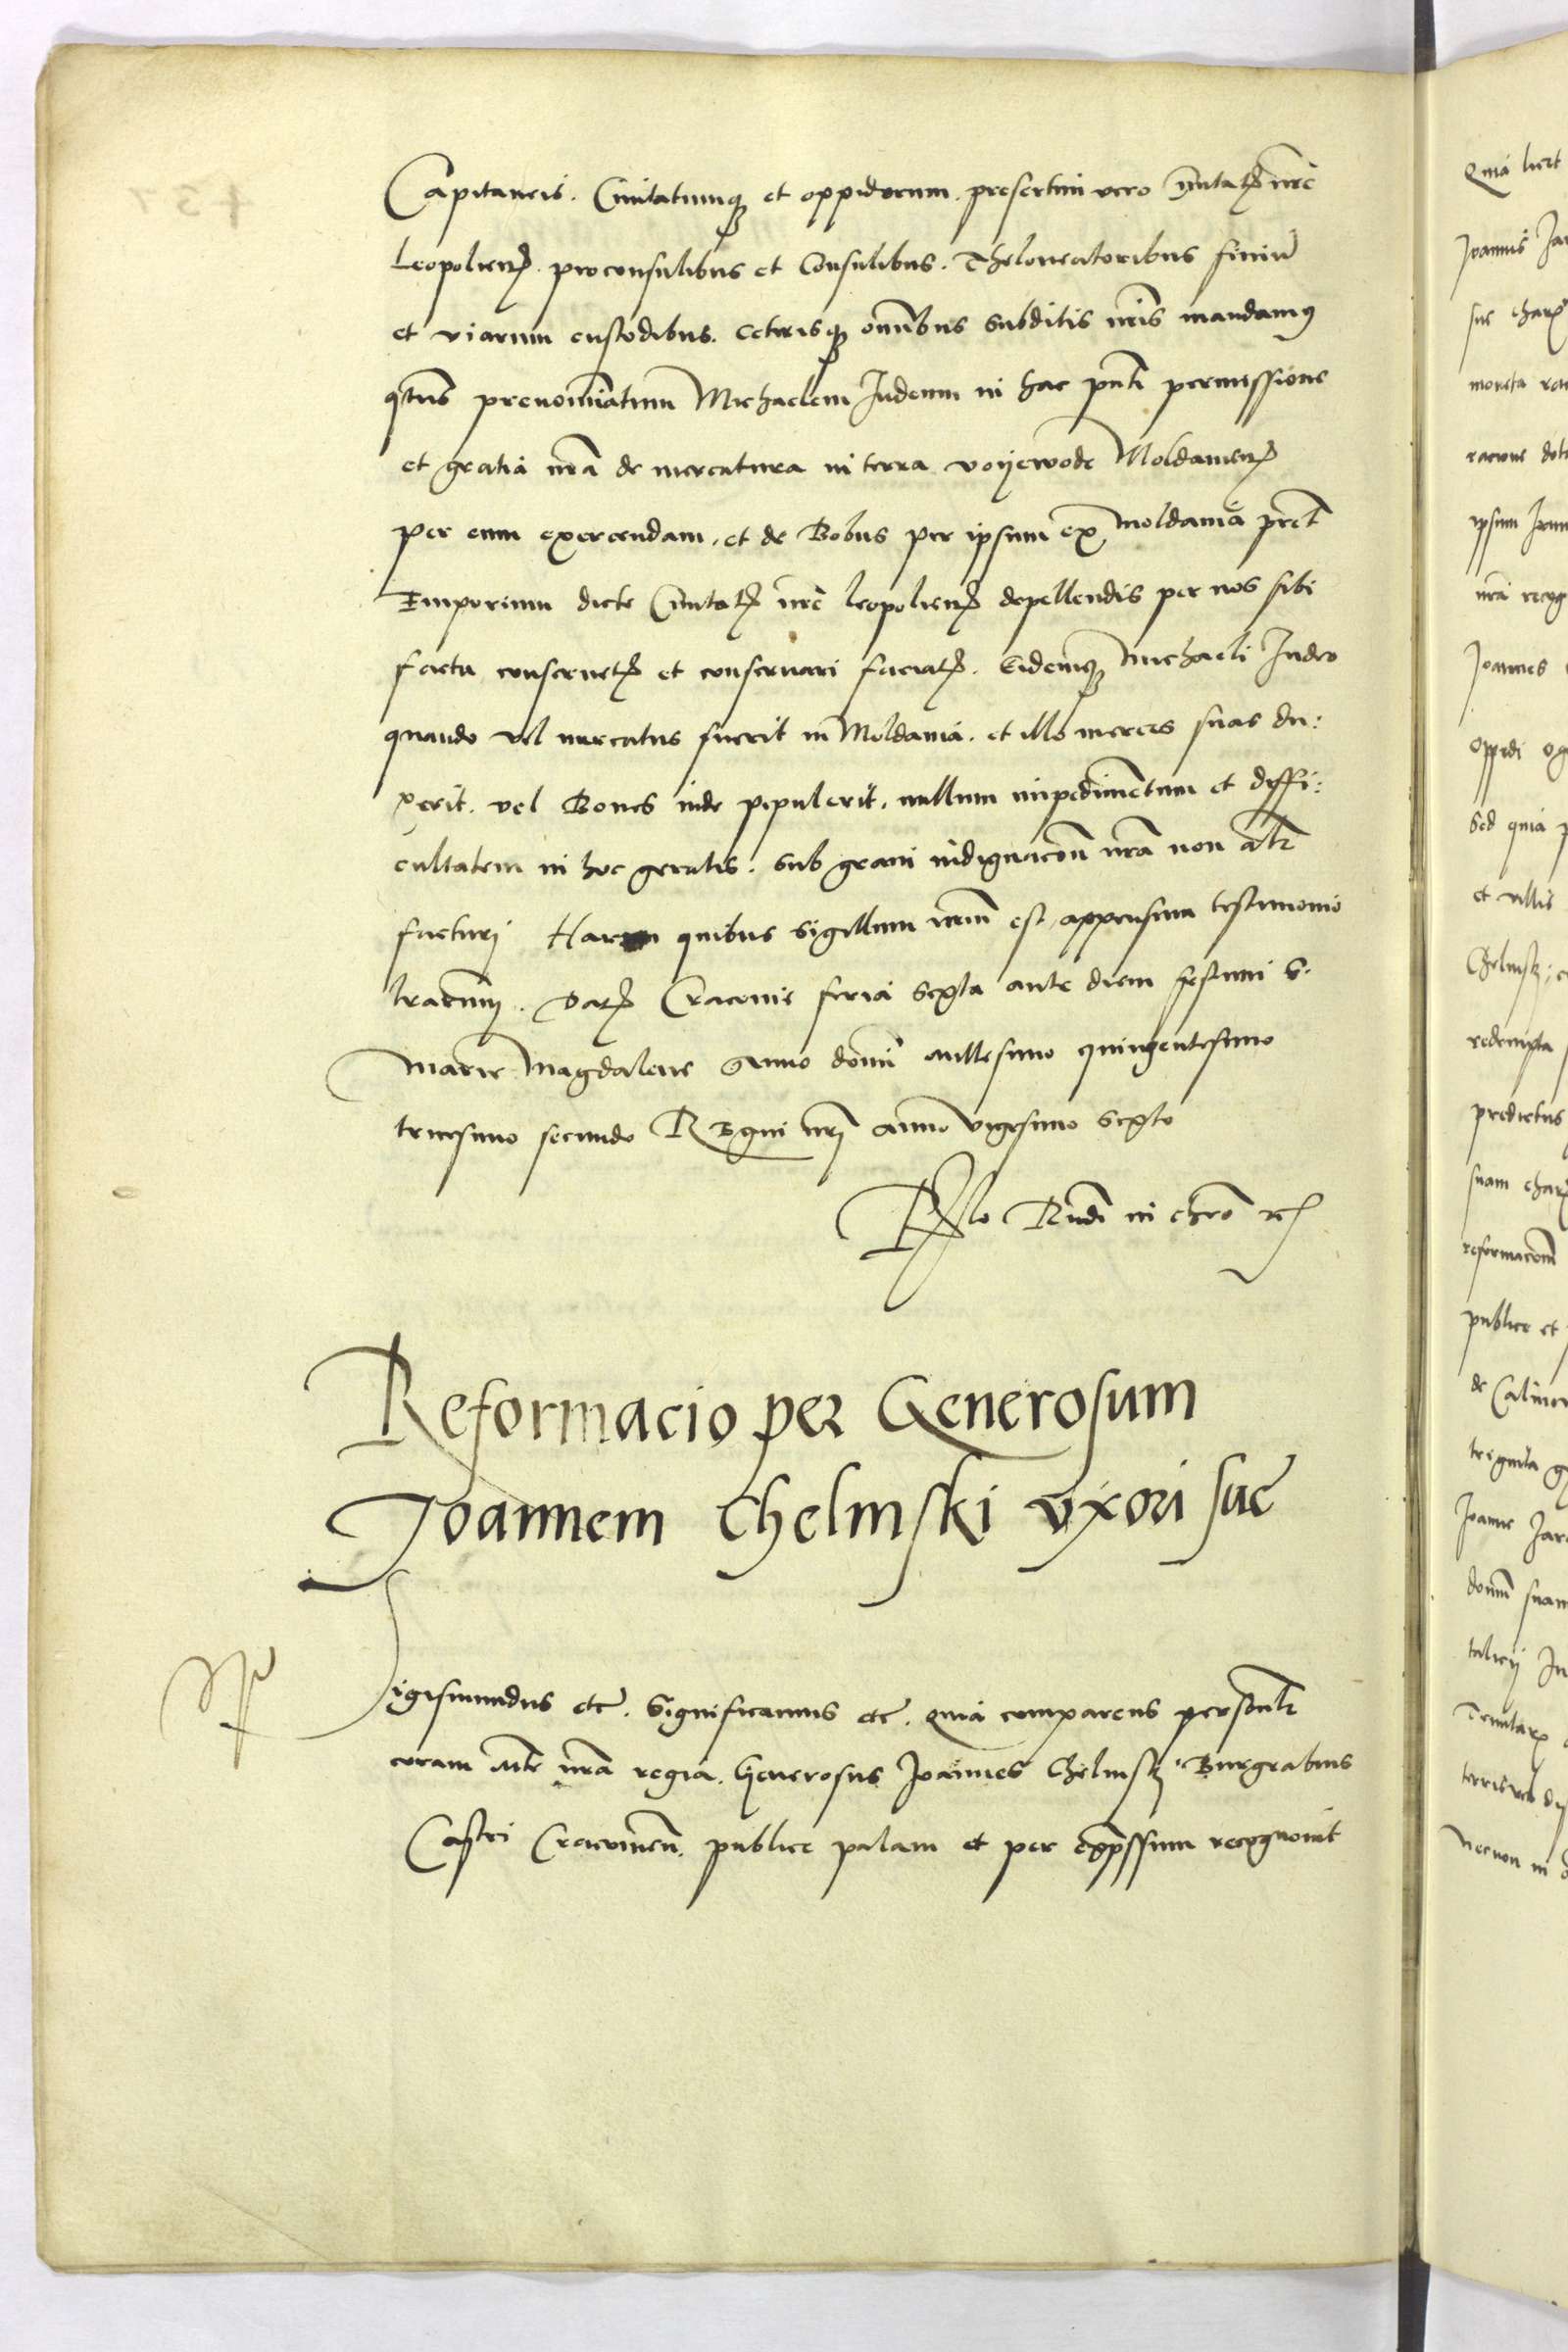 Capitaneis. Civitatumq3 et oppidorum. presertim vero Civitatꝭ nr̃e
Leopolienꝭ. proconsulibus et Consulibus. Theloneatoribus finiũ
et viarum custodibus. Ceterisq3 om̃ibus Subditis nr̃is mandamꝰ
q̃tus prenomĩatum Michaelem Iudeum in hac pñti permissione
et gratia nr̃a de mercatura in terra voyewode Moldavienꝭ
per eum exercendam. et de Bobus per ipsum ex moldavia
Emporium dicte Civitatꝭ nr̃e leopolienꝭ depellendis per nos sibi
facta conservetꝭ et conservari faciatꝭ. Eidemq3 michaeli Iudeo
quando vel mercatus fuerit in Moldavia. et illo merces suas du:
xerit. vel Boves inde pepulerit. nullum impedimẽtum et diffi:
cultatem in hoc geratis. Sub gravi indignacõe nr̃a non alr̃
facturi Harum quibus Sigillum nr̃um est appensum testimonio
lrarum. Datꝭ Cracovie feria Sexta ante diem festum S.
Marie Magdalene Anno domĩ millesimo quingentesimo
tricesimo secundo Regni nr̃i anno vigesimo Sexto
Rlo Rudi in chro rꝭ
Reformacio per Generosum
Joannem Chelmski vxori sue
Sigismundus etc̃. Significamus etc̃. Quia comparens personalr̃
coram Mte nr̃a regia. Generosus Joannes Chelmskj Burgrabius
Castri Cracovieñ. publice palam et per expressum recognovit
Quia licet
Joannis Jar
sue charꝭ
moneta
racione dota
ipsum
nr̃a recog
Joannes
oppidi
Sed quia
et villis
Chelmskj
redempta
predictus
suam char
reformacom̃
publice et
de
triginta
Joanne Jar
domũ suam
talicij In
Necnon in